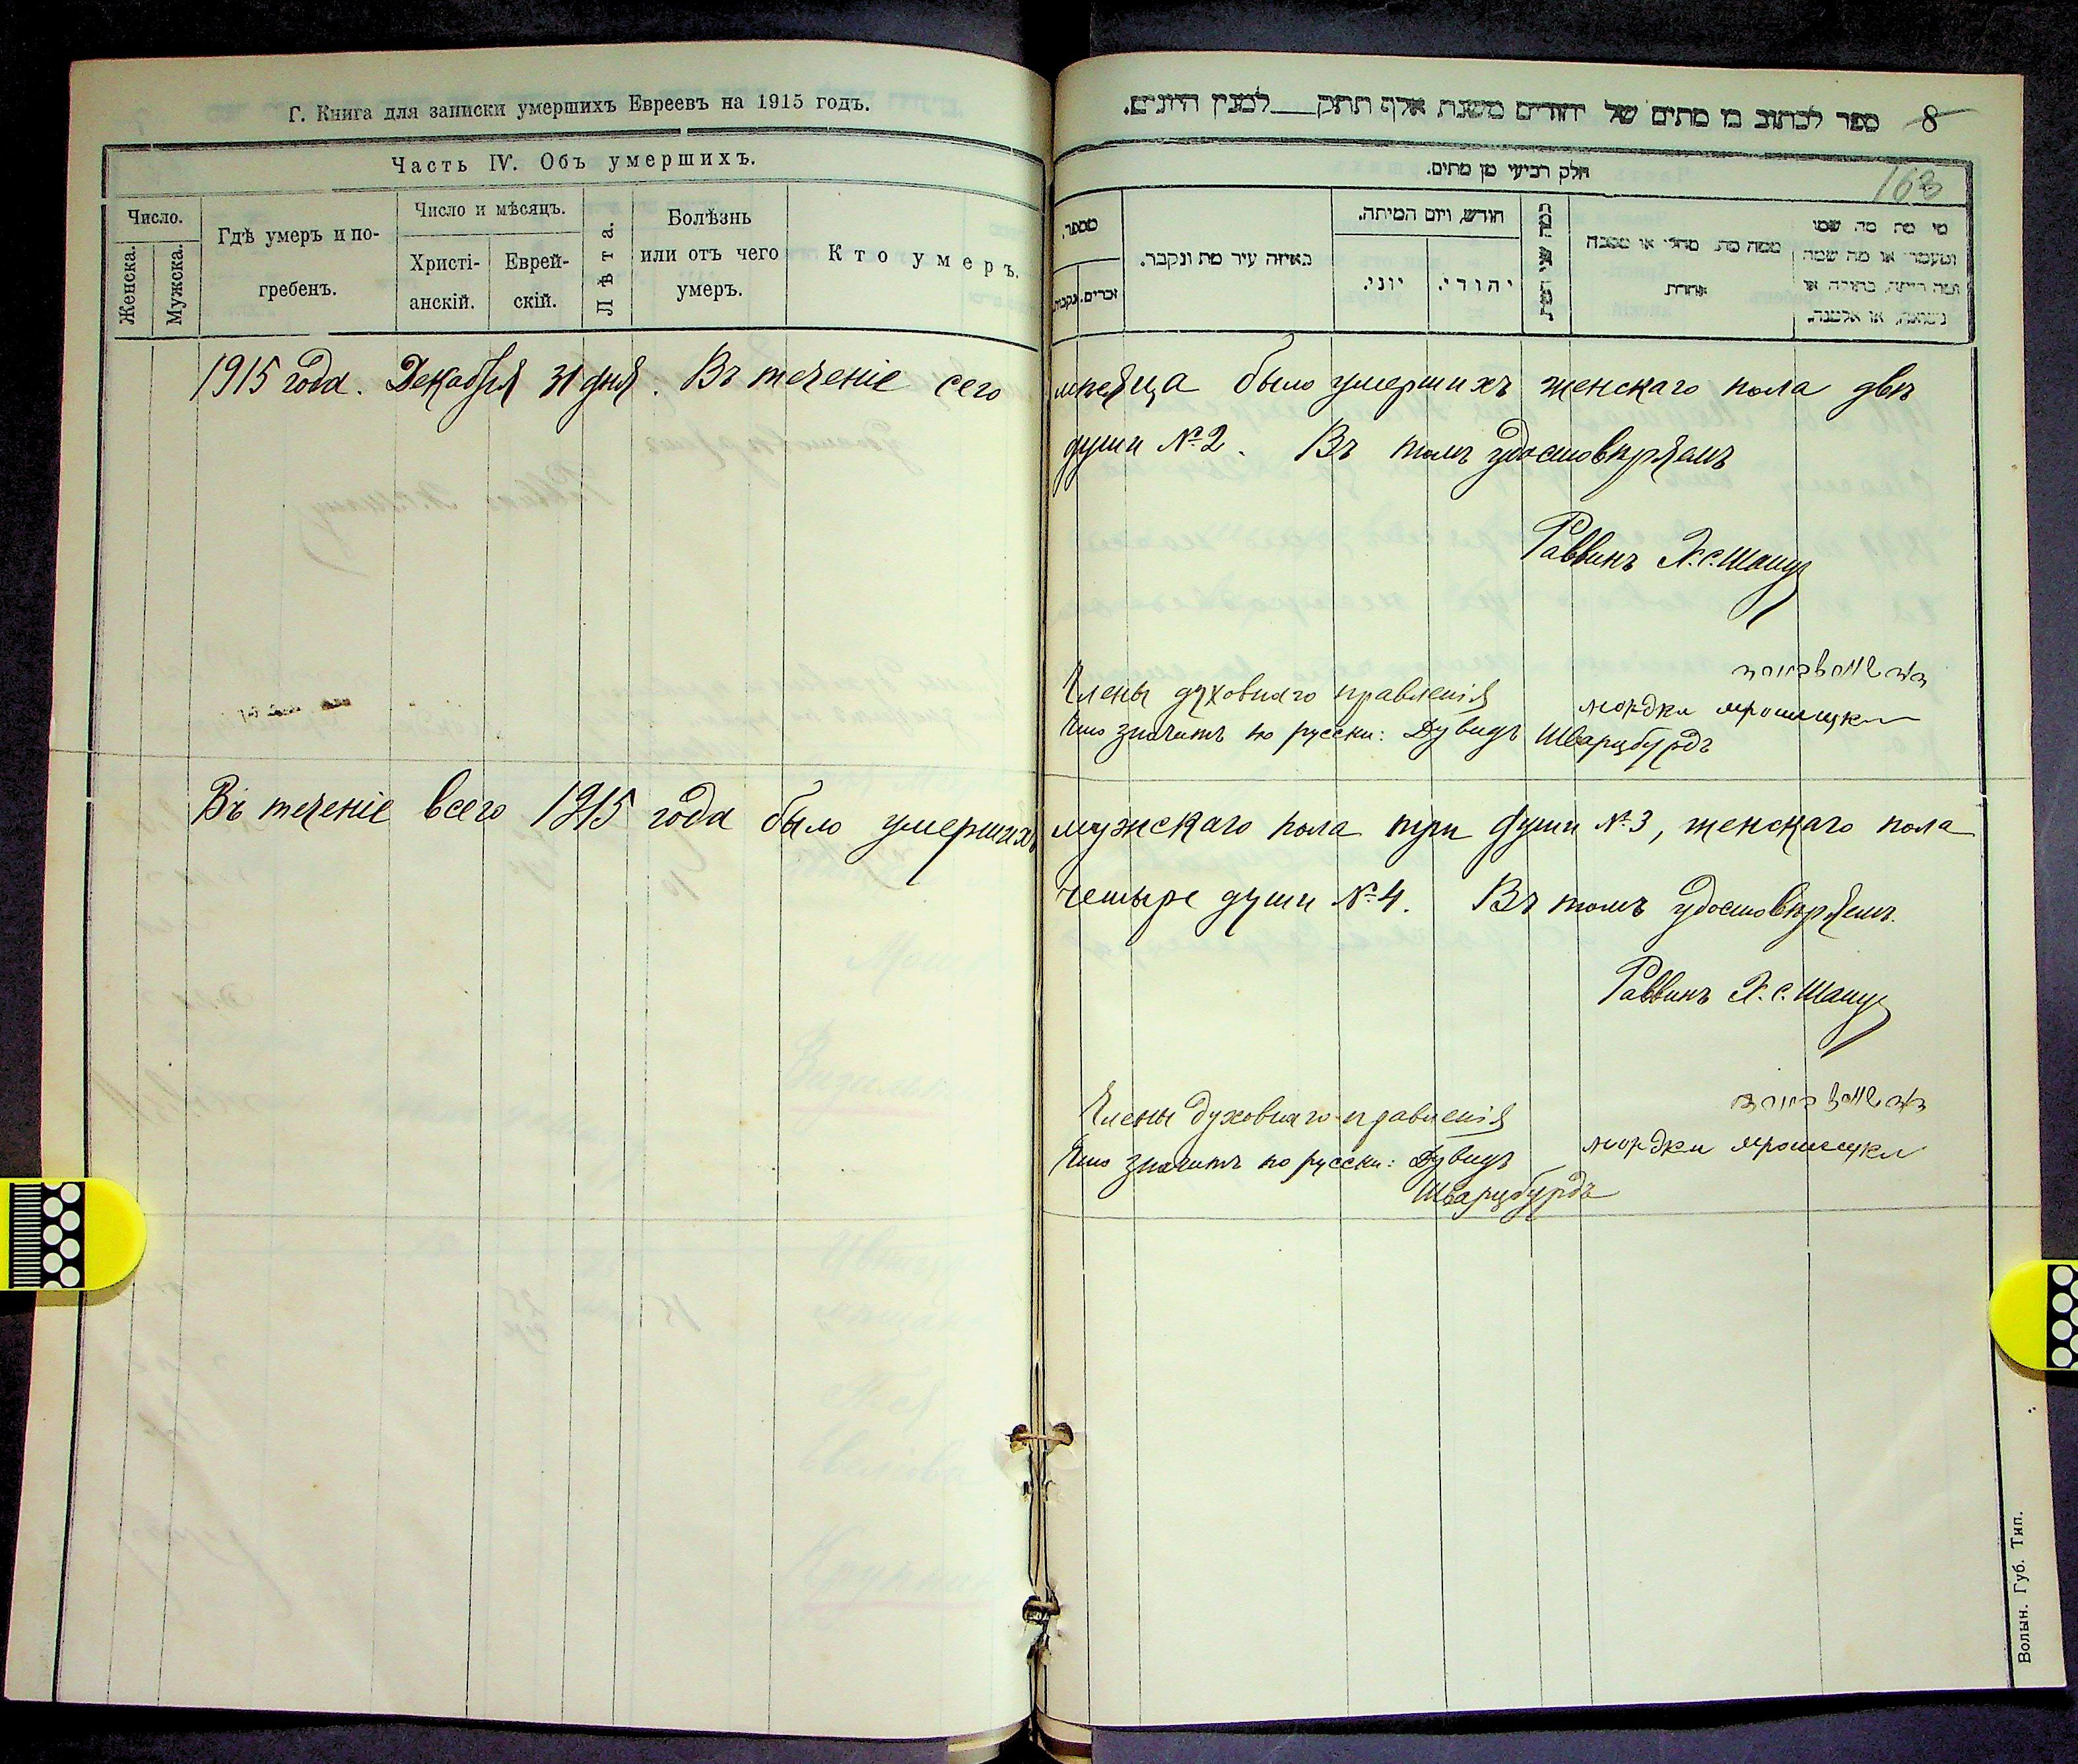 Г. Книга для записки умершихъ Евреевъ на 1915 годъ.
Часть IV. Объ умершихъ.
Число.
Женска.
Мужска.
Гдѣ умеръ и по-
гребенъ.
Число и мѣсяцъ.
Христі-
анскій.
Еврей-
скій.
Лѣта.
Болѣзнь
или отъ чего
умеръ.
Кто умеръ.
ספר לכתוב בו מתים של יהודים משנת אלף תתק___למנין היונים.
8
163
חלק רביעי מן מתים.
מספר.
זכרים.
נקבות
באיזה עיר מת ונקבר.
חודש, ויום המיתה.
יוני.
יהודי.
ממה מת, מחלי או מסבה
אחרת
מי מת מה שמו
ומעמדו או מה שמה
ומה היתה, בתולה או
נשואה, או אלמנה.
1915 года. Декабря 31 дня. Въ теченіе сего мѣсяца было умершихъ женскаго пола двѣ
души №2. Въ томъ удостовѣряемъ
Раввинъ Х.С. Шапу
Члены духовнаго правленія
мордки
Что значитъ по русски: Дувидъ Шварцбурдъ
Въ теченіе всего 1915 года было умершихъ мужскаго пола три души №3, женскаго пола
четыре души №4. Въ томъ удостовѣряемъ.
Раввинъ Х.С. Шапу
Члены духовнаго правленія
мордки
Что значитъ по русски: Дувидъ
Шварцбурдъ
Волын. Губ. Тип.